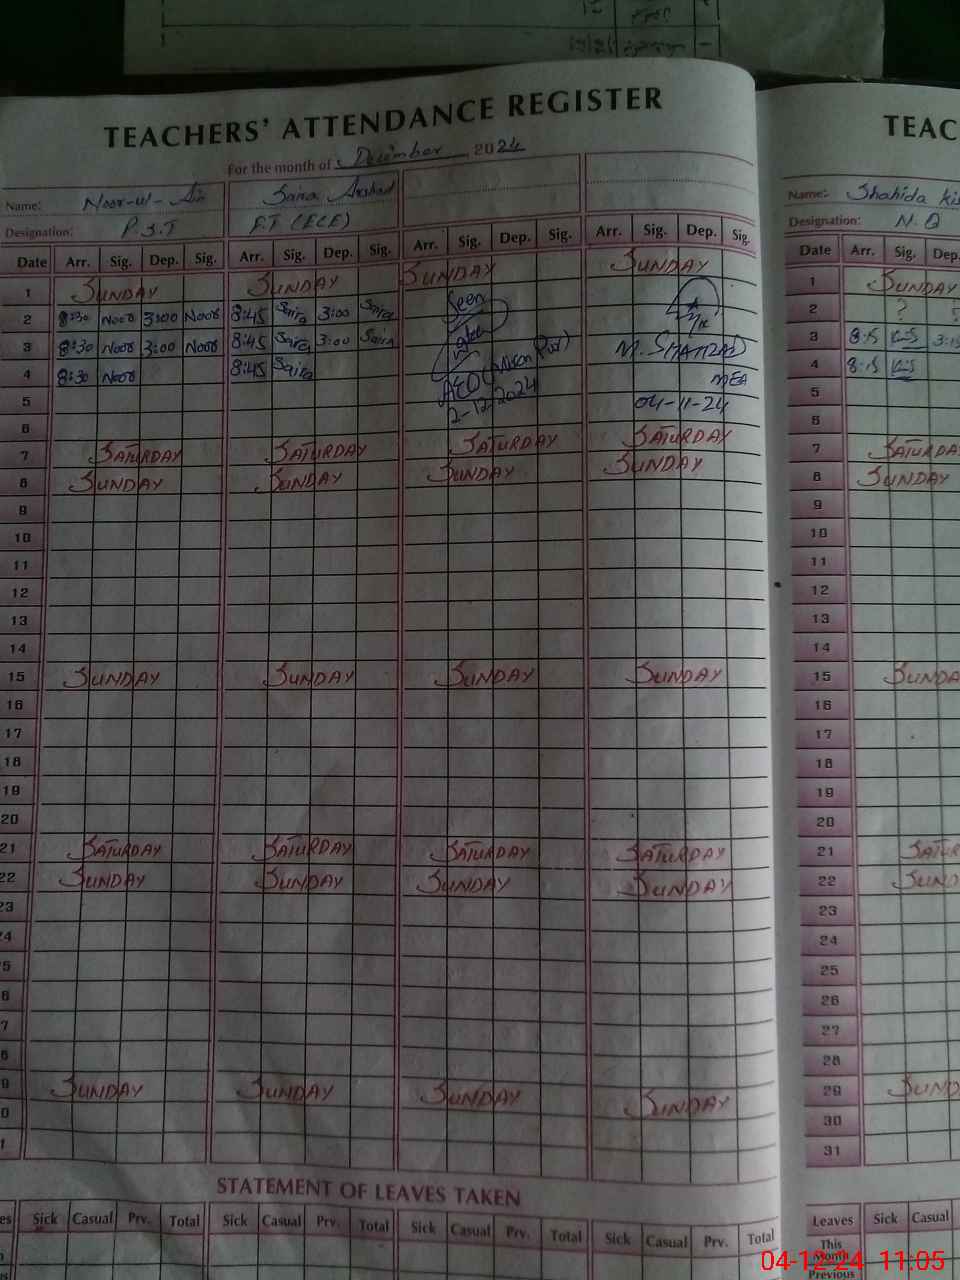 TEACHERS' ATTENDANCE REGISTER
For the month of December, 2024
Name: Noor-ul-Ain Saira Arshad
Designation: P.S.T F.T (ECE)
Date Arr. Sig. Dep. Sig. Arr. Sig. Dep. Sig. Arr. Sig. Dep. Sig. Arr. Sig. Dep. Sig.
1 SUNDAY SUNDAY SUNDAY SUNDAY
2 8:30 Noor 3:00 Noor 8:45 Saira 3:00 Saira Seen
3 8:30 Noor 3:00 Noor 8:45 Saira 3:00 Saira M. SHAHZAD
4 8:30 Noor 8:45 Saira AEO MEA
5 2-12-2024 04-11-24
6
7 SATURDAY SATURDAY SATURDAY SATURDAY
8 SUNDAY SUNDAY SUNDAY SUNDAY
9
10
11
12
13
14
15 SUNDAY SUNDAY SUNDAY SUNDAY
16
17
18
19
20
21 SATURDAY SATURDAY SATURDAY SATURDAY
22 SUNDAY SUNDAY SUNDAY SUNDAY
23
4
5
6
7
8
9 SUNDAY SUNDAY SUNDAY SUNDAY
0
1
STATEMENT OF LEAVES TAKEN
es Sick Casual Prv. Total Sick Casual Prv. Total Sick Casual Prv. Total Sick Casual Prv. Total
TEAC
Name: Shahida
Designation: N.Q
Date Arr. Sig. Dep.
1 SUNDAY
2 ?
3 8:15 3:15
4 8:15
5
6
7 SATURDA
8 SUNDAY
9
10
11
12
13
14
15 SUNDA
16
17
18
19
20
21 SATUR
22 SUND
23
24
25
26
27
28
29 SUND
30
31
Leaves Sick Casual
This
Month
Previous
04-12-24 11:05